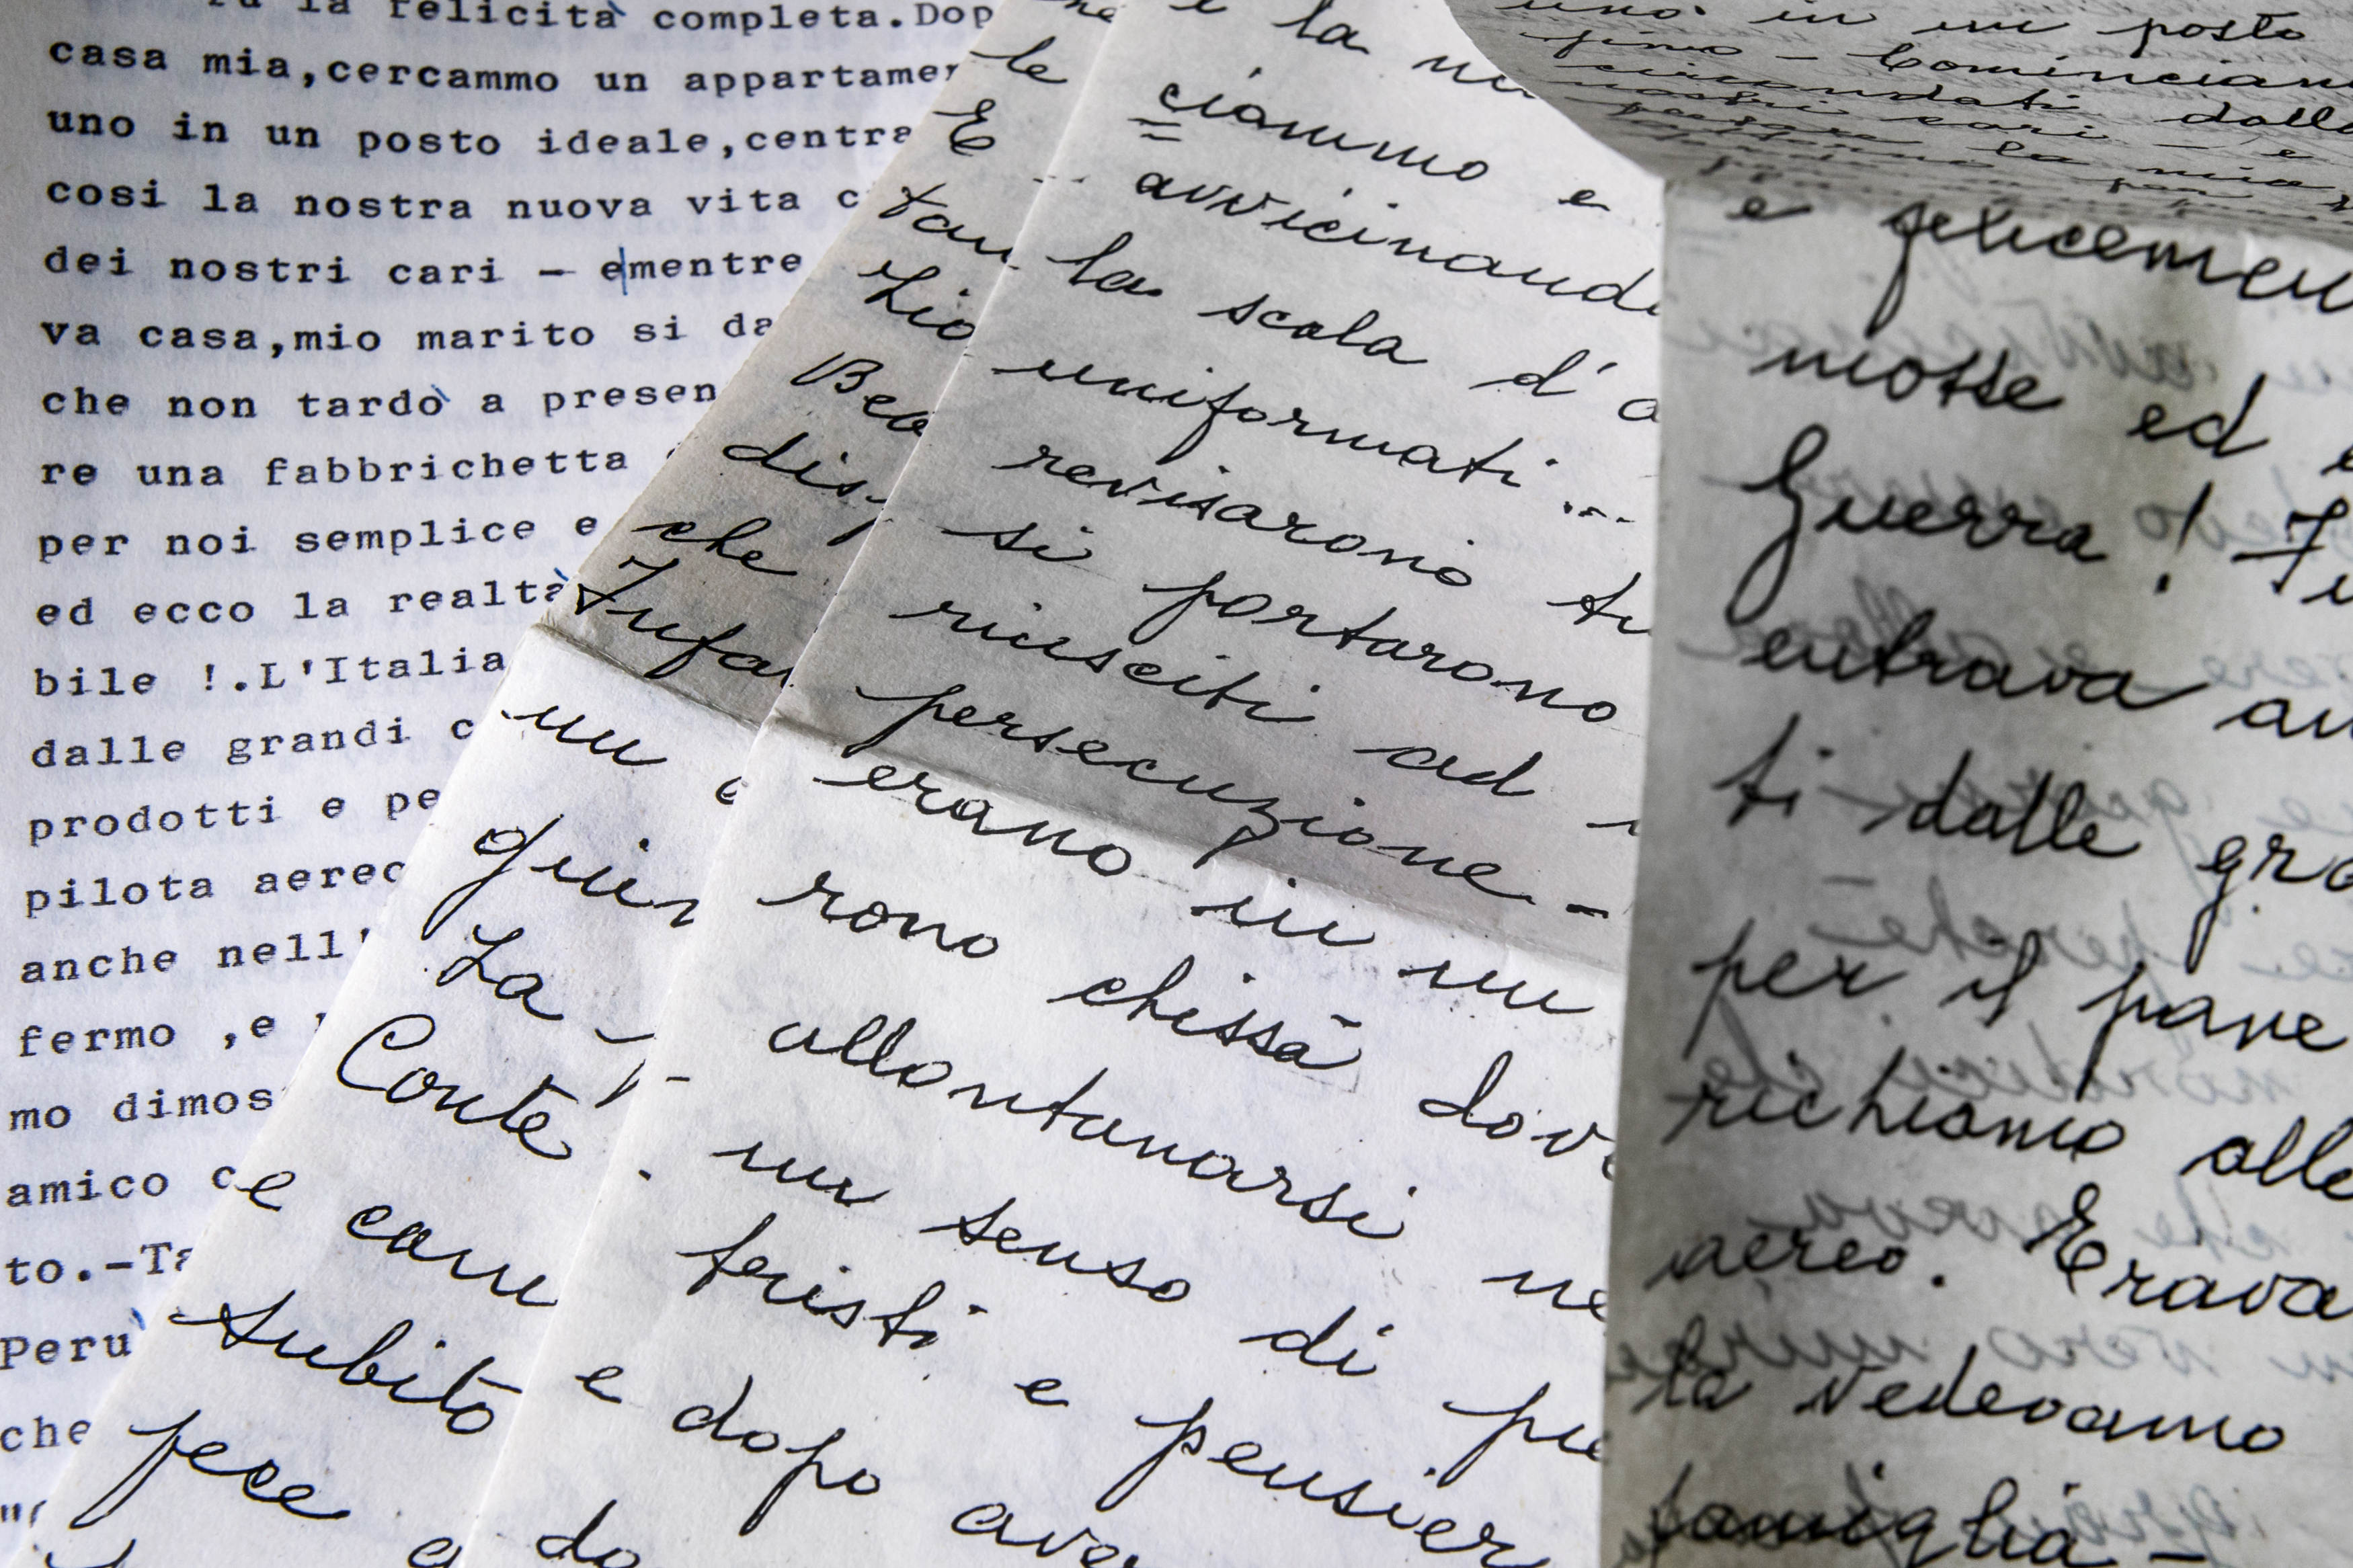 la felicità completa.Dop
casa mia,cercammo un appartamen
uno in un posto ideale,centra
cosi la nostra nuova vita c
dei nostri cari - ementre
va casa,mio marito si da
che non tardò a presen
re una fabbrichetta
per noi semplice e
ed ecco la realtà
bile !.L'Italia
dalle grandi c
prodotti e pe
pilota aereo
anche nell'
fermo ,e
mo dimos
amico c
to.-Ta
Perù
che
le
E
tan
zio
Bea
dis
che
Infa
un
quin
La
Conte
e com
subito
fece
e la
ciammo e
avvicinand
la scala d'a
uniformati ...
revisarono tu
si portarono
riusciti ad
persecuzione -
erano in un
rono chissà dov
allontanarsi ne
un senso di pu
tristi e pensier
e dopo ave
do
uno in un posto
fino - Cominciam
circondati dalla
nostri cari - e
e felicemen
mosse ed
Guerra! Fu
entrava an
ti dalle gra
per il pane
richiamo alle
aereo. Erava
la vedevamo
famiglia -